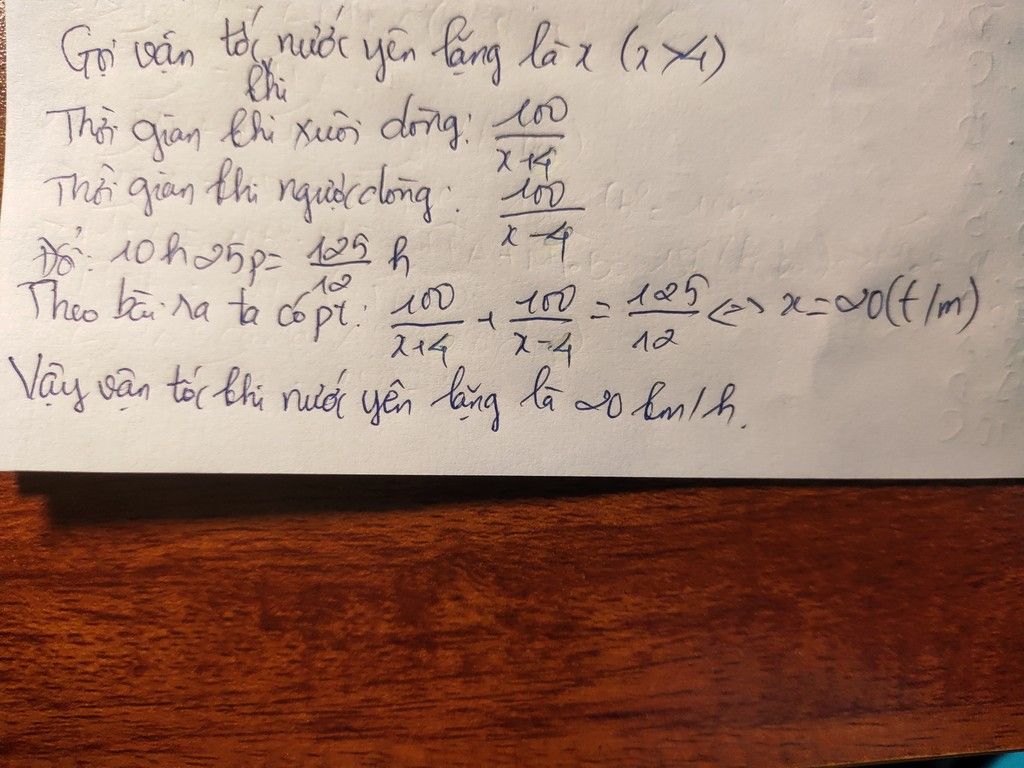 Gọi vận tốc khi nước yên lặng là x (x>4)
Thời gian khi xuôi dòng: 100/x+4
Thời gian khi ngược dòng: 100/x-4
Đổi: 10h25p = 125/12 h
Theo bài ra ta có pt: 100/x+4 + 100/x-4 = 125/12 <=> x=20(t/m)
Vậy vận tốc khi nước yên lặng là 20 km/h.